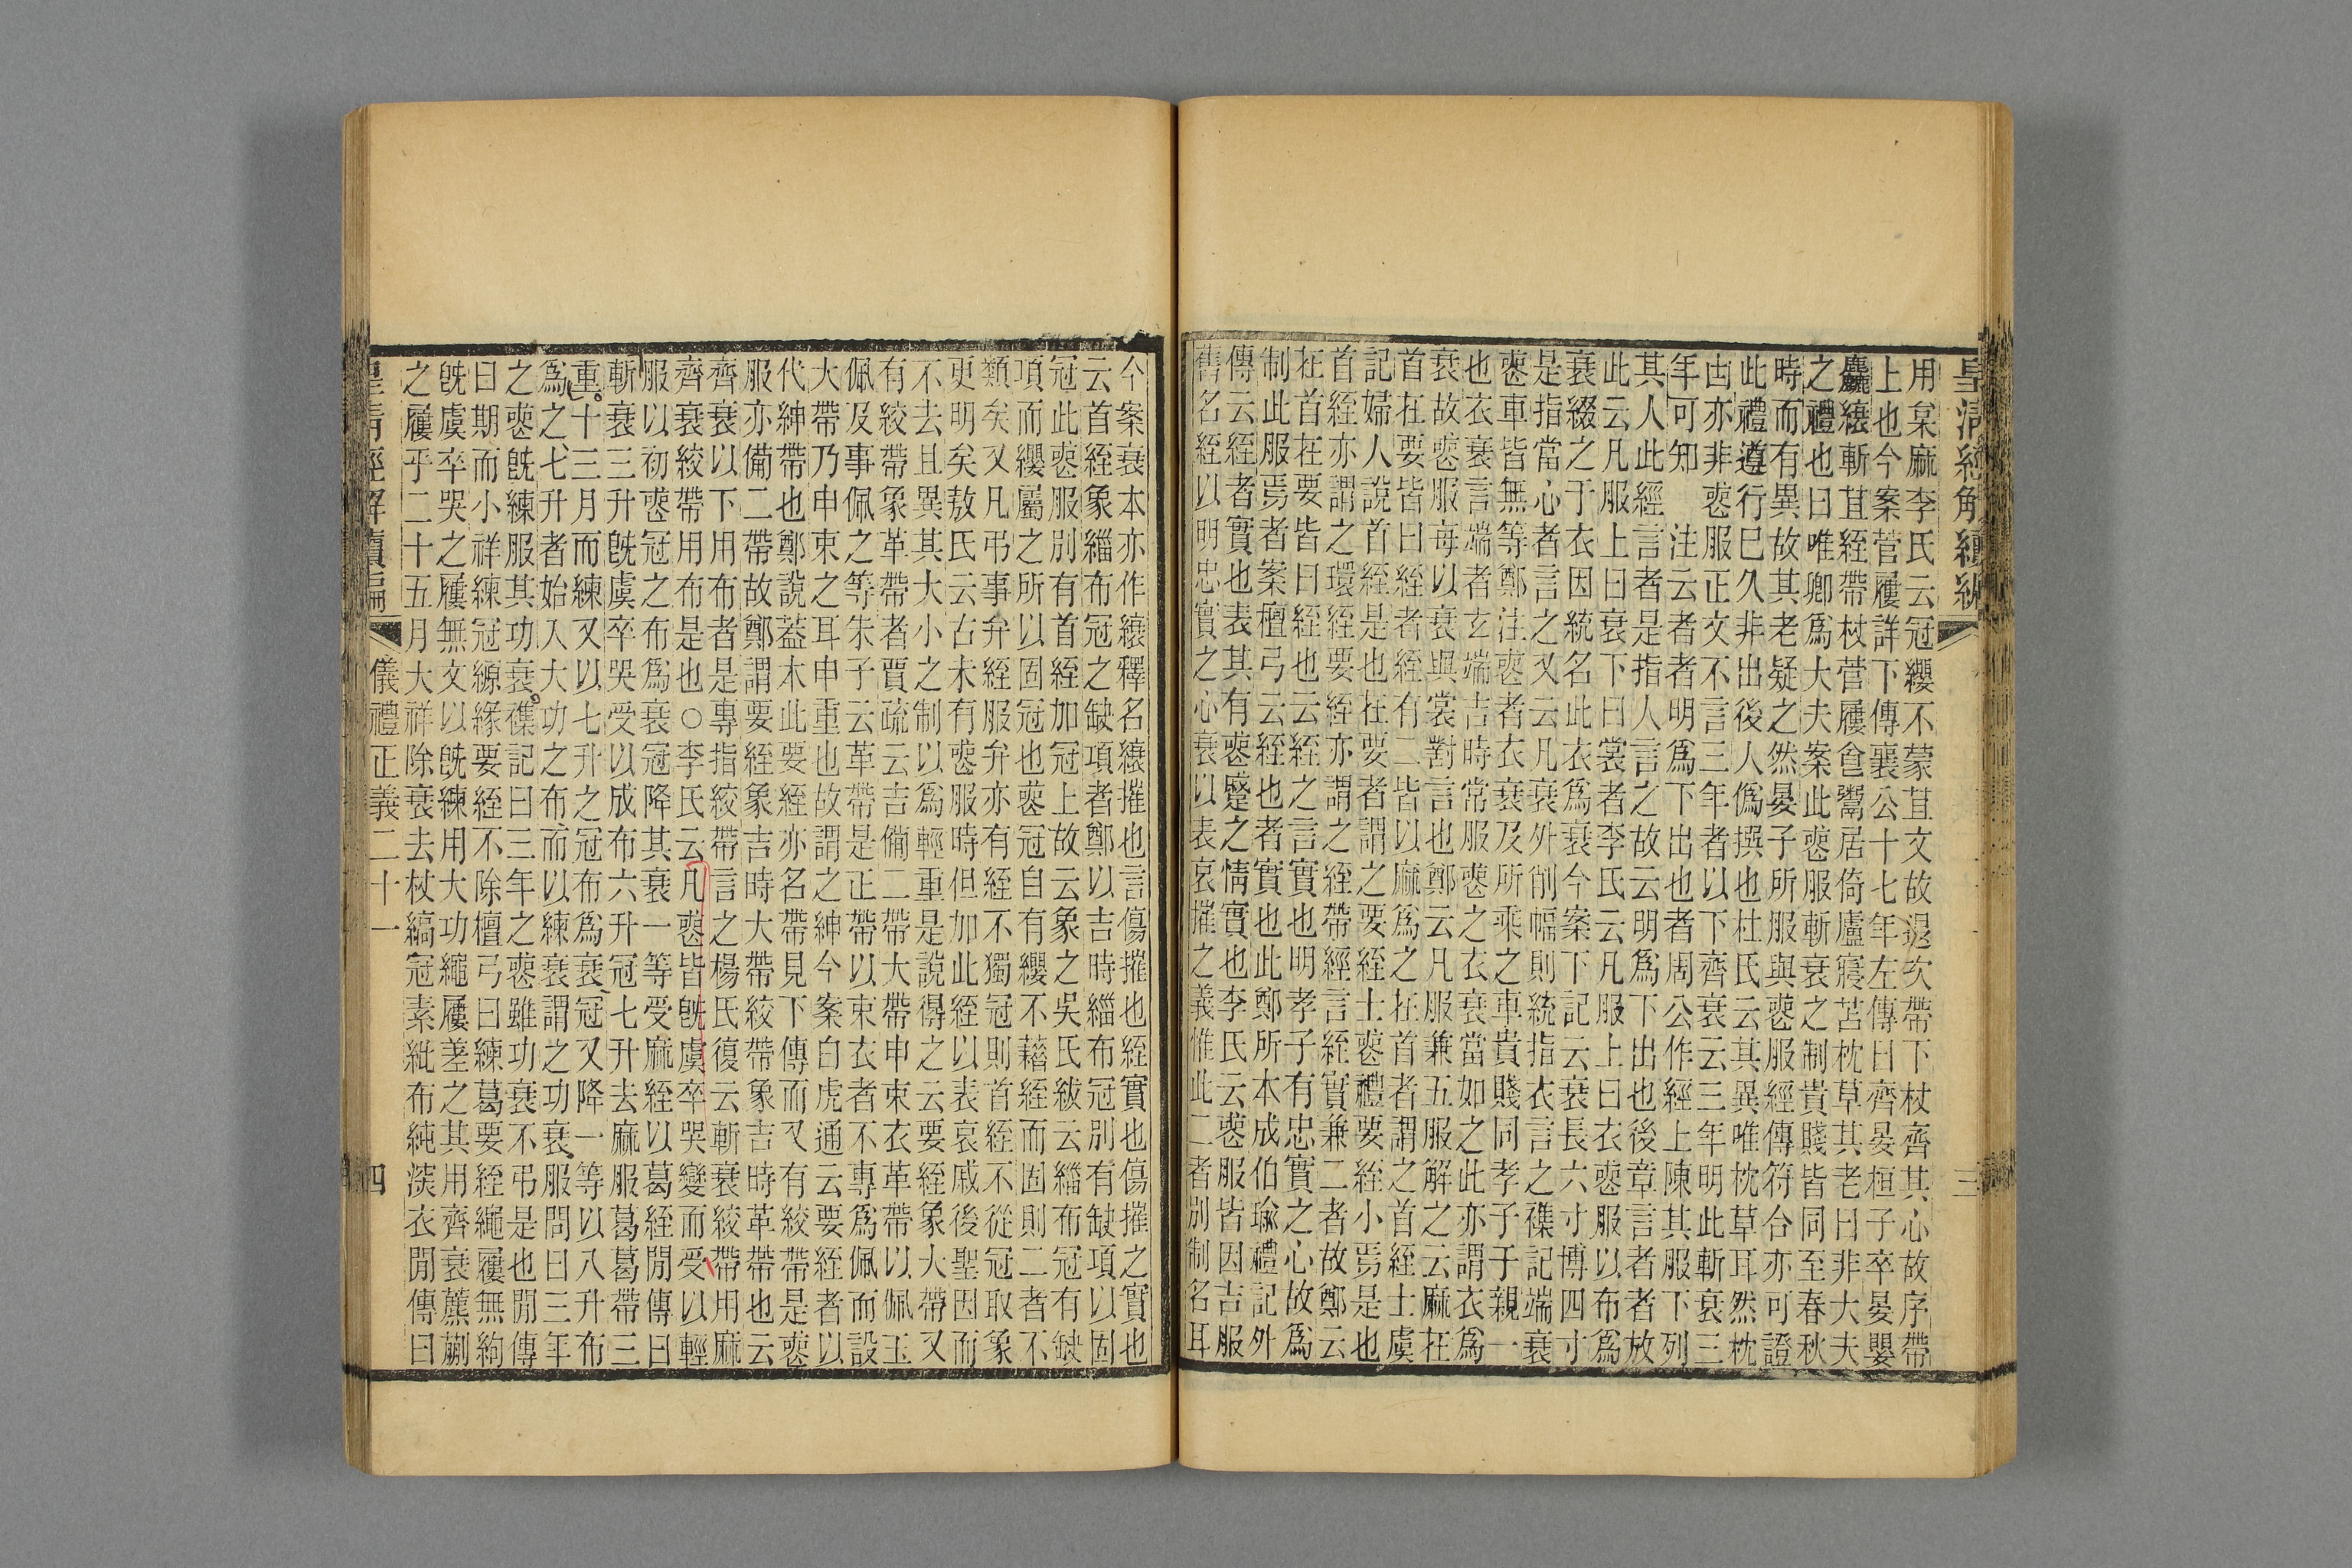 皇清經解續編
三
用枲麻李氏云冠纓不蒙苴文故退次帶下杖齊其心故序帶
上也今案菅屨詳下傳襄公十七年左傳曰齊晏桓子卒晏嬰
麤縗斬苴絰帶杖菅屨食鬻居倚廬寢苫枕草其老曰非大夫
之禮也曰唯卿爲大夫案此喪服斬衰之制貴賤皆同至春秋
時而有異故其老疑之然晏子所服與喪服經傳符合亦可證
此禮遵行巳久非出後人僞撰也杜氏云其異唯枕草耳然枕
凷亦非喪服正文不言三年者以下齊衰云三年明此斬衰三
年可知　注云者者明爲下出也者周公作經上陳其服下列
其人此經言者是指人言之故云明爲下出也後章言者者放
此云凡服上曰衰下曰裳者李氏云凡服上曰衣喪服以布爲
衰綴之于衣因統名此衣爲衰今案下記云衰長六寸博四寸
是指當心者言之又云凡衰外削幅則統指衣言之襍記端衰
喪車皆無等鄭注喪者衣衰及所乘之車貴賤同孝子于親一
也衣衰言端者玄端吉時常服喪之衣衰當如之此亦謂衣爲
衰故喪服每以衰與裳對言也鄭云凡服兼五服解之云麻在
首在要皆曰絰者絰有二皆以麻爲之在首者謂之首絰士虞
記婦人說首絰是也在要者謂之要絰士喪禮要絰小焉是也
首絰亦謂之環絰要絰亦謂之絰帶經言絰實兼二者故鄭云
在首在要皆曰絰也云絰之言實也明孝子有忠實之心故爲
制此服焉者案檀弓云絰也者實也此鄭所本成伯瑜禮記外
傳云絰者實也表其有喪蹙之情實也李氏云喪服皆因吉服
舊名絰以明忠實之心衰以表哀摧之義惟此二者別制名耳
今案衰本亦作縗釋名縗摧也言傷摧也絰實也傷摧之實也
云首絰象緇布冠之缺項者鄭以吉時緇布冠別有缺項以固
冠此喪服別有首絰加冠上故云象之吳氏紱云緇布冠有缺
項而纓屬之所以固冠也喪冠自有纓不藉絰而固則二者不
類矣又凡弔事弁絰服弁亦有絰不獨冠則首絰不從冠取象
更明矣敖氏云古未有喪服時但加此絰以表哀戚後聖因而
不去且異其大小之制以爲輕重是說得之云要絰象大帶又
有絞帶象革帶者賈疏云吉備二帶大帶申束衣革帶以佩玉
佩及事佩之等朱子云革帶是正帶以束衣者不專爲佩而設
大帶乃申束之耳申重也故謂之紳今案白虎通云要絰者以
代紳帶也鄭說葢本此要絰亦名帶見下傳而又有絞帶是喪
服亦備二帶故鄭謂要絰象吉時大帶絞帶象吉時革帶也云
齊衰以下用布者是專指絞帶言之楊氏復云斬衰絞帶用麻
齊衰絞帶用布是也○李氏云凡喪皆旣虞卒哭變而受以輕
服以初喪冠之布爲衰冠降其衰一等受麻絰以葛絰閒傳曰
斬衰三升旣虞卒哭受以成布六升冠七升去麻服葛葛帶三
重十三月而練又以七升之冠布爲衰冠又降一等以八升布
爲之七升者始入大功之布而以練衰謂之功衰服問曰三年
之喪旣練服其功衰襍記曰三年之喪雖功衰不弔是也閒傳
曰期而小祥練冠縓緣要絰不除檀弓曰練葛要絰繩屨無絇
旣虞卒哭之屨無文以旣練用大功繩屨差之其用齊衰藨蒯
之屨乎二十五月大祥除衰去杖縞冠素紕布純深衣閒傳曰
皇清經解續編
儀禮正義二十一
四